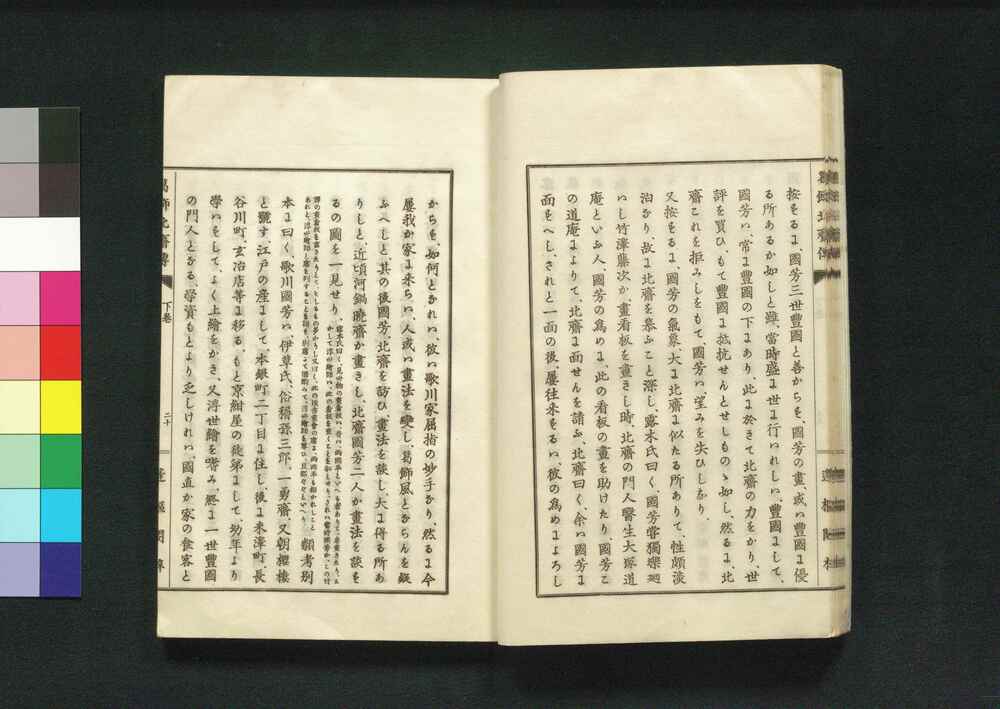 按ずるに、國芳三世豐國と善からず、國芳の畫、或ハ豐國に優
る所あるか如しと雖、當時盛に世に行ハれしハ、豐國にして、
國芳ハ、常に豐國の下にあり、此に於きて北齋の力をかり、世
評を買ひ、もて豐國に抵抗せんとせしものゝ如し、然るに、北
齋これを拒みしをもて、國芳ハ、望みを失ひしなり、
又按ずるに、國芳の氣象、大に北齋に似たる所ありて、性頗淡
泊なり、故に北齋を慕ふこと深し、露木氏曰く、國芳嘗獨樂廻
ハし竹澤藤次か、畫看板を畫きし時、北齋の門人醫生大塚道
庵といふ人、國芳の爲めに、此の看板の畫を助けたり、國芳こ
の道庵によりて、北齋に面せんを請ふ、北齋曰く、余ハ國芳に
面をべし、されと一面の後、屢往來をるハ、彼の爲めによろし
からず、如何となれハ、彼ハ歌川家屈指の妙手なり、然るに今
屢我か家に來らハ、人或ハ畫法を變し、葛飾風とならんを疑
ふべしと、其の後國芳、北齋を訪ひ、畫法を談し、大に得る所あ
りしと、近頃河鍋曉齋か畫きし、北齋國芳二人か畫法を談を
るの圖を一見せり、
類考別
本に曰く、歌川國芳ハ、伊草氏、俗稱孫三郎、一勇齋、又朝櫻樓
と號す、江戸の産にして、本銀町二丁目に住し、後に米澤町、長
谷川町、玄冶店等に移る、もと京紺屋の徒弟にして、幼年より
學ハをして、よく上繪をかき、又浮世繪を嗜み、終に一世豐國
の門人となる、學資もとより乏しけれハ、國直か家の食客と
葛飾北齋傳
下卷
二十